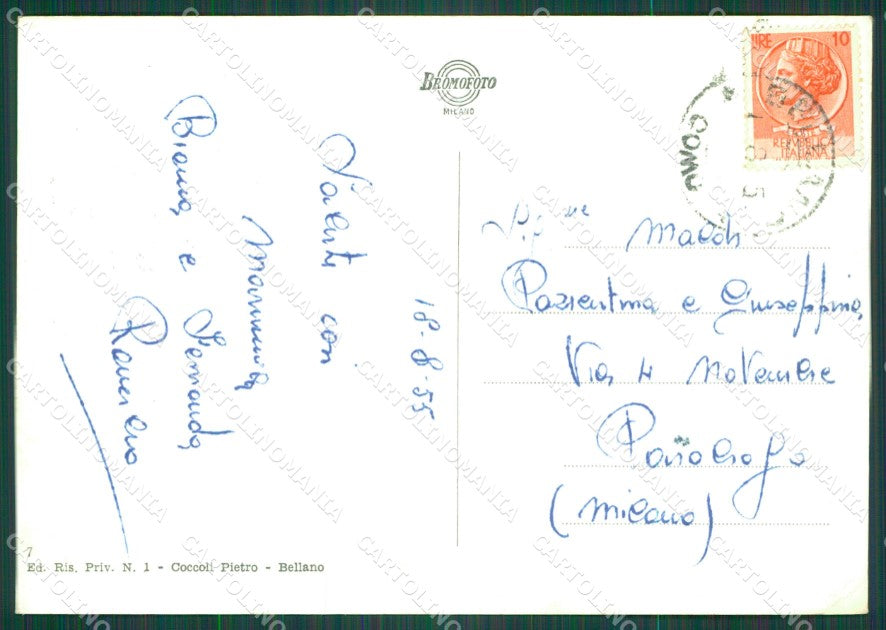 BROMOFOTO
MILANO
LIRE 10
REPUBBLICA
ITALIANA
COMO
18-8-55
Saluti con
Mammina
Bianca e Fernanda
Maldi
Pazientina e Giuseppina
Via 4 Novembre
(Milano)
7
Ed. Ris. Priv. N. 1 - Coccoli Pietro - Bellano
CARTOLINOMANIA